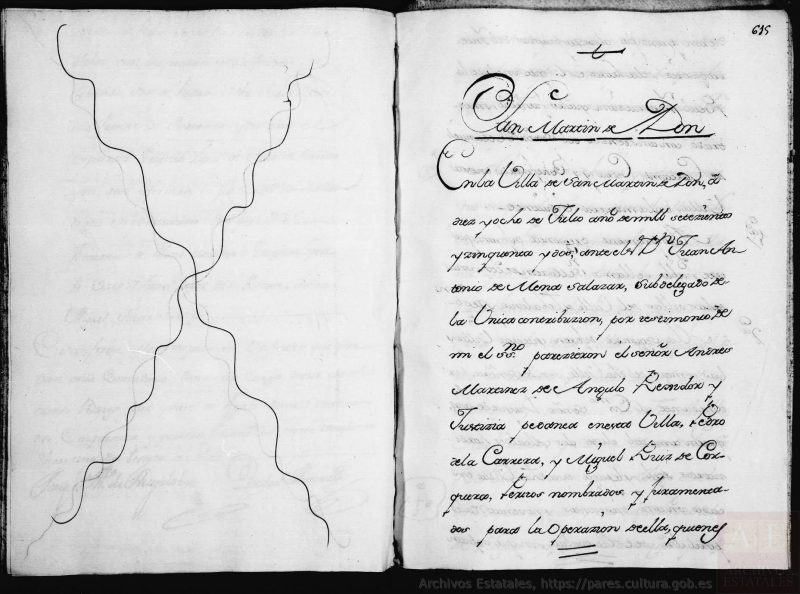 695
San Martin de Don
En la Villa de San Martin de Don, a
diez y ocho de Julio año de mill setezientos
y zinquenta y dos, ante el Sr. Dn. Juan An
tonio de Mena Salazar, Subdelegado de
la Unica contribuzion, por testimonio de
mi el ssno. parezieron el señor Andres
Martinez de Angulo Rexidor y
Justizia pedanea en esta Villa, Pedro
de la Carrera, y Miguel Ruiz de Cor-
quera, Peritos nombrados y juramenta-
dos para la Operazion de ella, quienes
Archivos Estatales, https://pares.cultura.gob.es